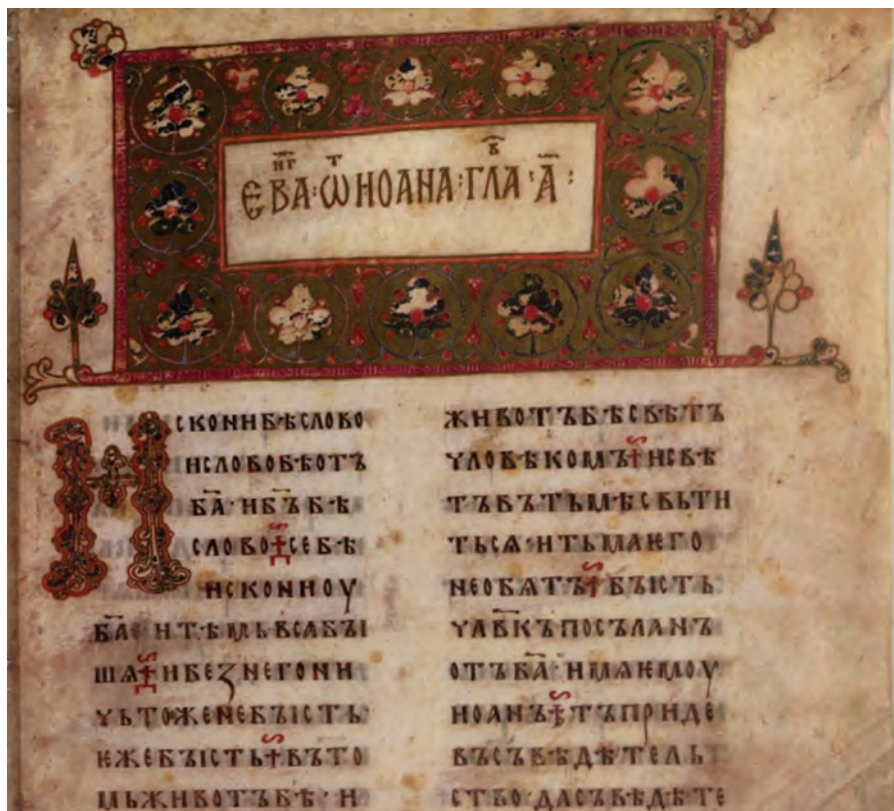 ЄВА҃НГ·Ѿ ИОАНА·ГЛАВ·А҃:
ИСКОНИБѢСЛОВО
ИСЛОВОБѢОТЪ
БА҃·ИБЪ҃БѢ
СЛОВО СЕБѢ
ИСКОНИОУ
БА҃·ИТѢМЬВСАБЪІ
ШѦ ИБЕЗНЕГОНИ
ЧЬТОЖЕНЕБЪІСТЬ
ѤЖЕБЪІСТЬ ВЪТО
МЬЖИВОТЪБѢ·И
ЖИВОТЪБѢСВѢТЪ
ЧЛОВѢКОМЪ ИСВѢ
ТЪВЪТЬМѢСВЬТИ
ТЬСѦ·ИТЬМАѤГО
НЕОБѦТЪ БЪІСТЬ
ЧЛВ҃КЪПОСЪЛАНЪ
ОТЪБА҃·ИМѦѤМОУ
ИОАНЪ ТЪПРИДЕ
ВЪСЪВѢДѢТЕЛЬ
СТВО·ДАСЪВѢДѢТЕ